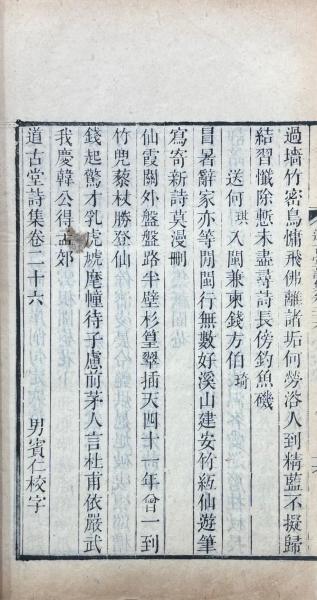 過墻竹密鳥慵飛佛離諸垢何勞浴人到精藍不擬歸
結習懺除慙未盡尋詩長傍釣魚磯
送何琪入閩兼柬錢方伯琦
冒暑辭家亦等閒閩行無數好溪山建安竹紙仙遊筆
寫寄新詩莫漫刪
仙霞關外盤盤路半壁杉篁翠插天四十一年曾一到
竹兜藜杖勝登仙
錢起驚才乳虎虓麾幢待子慮前茅人言杜甫依嚴武
我慶韓公得孟郊
道古堂詩集卷二十六
男賓仁校字